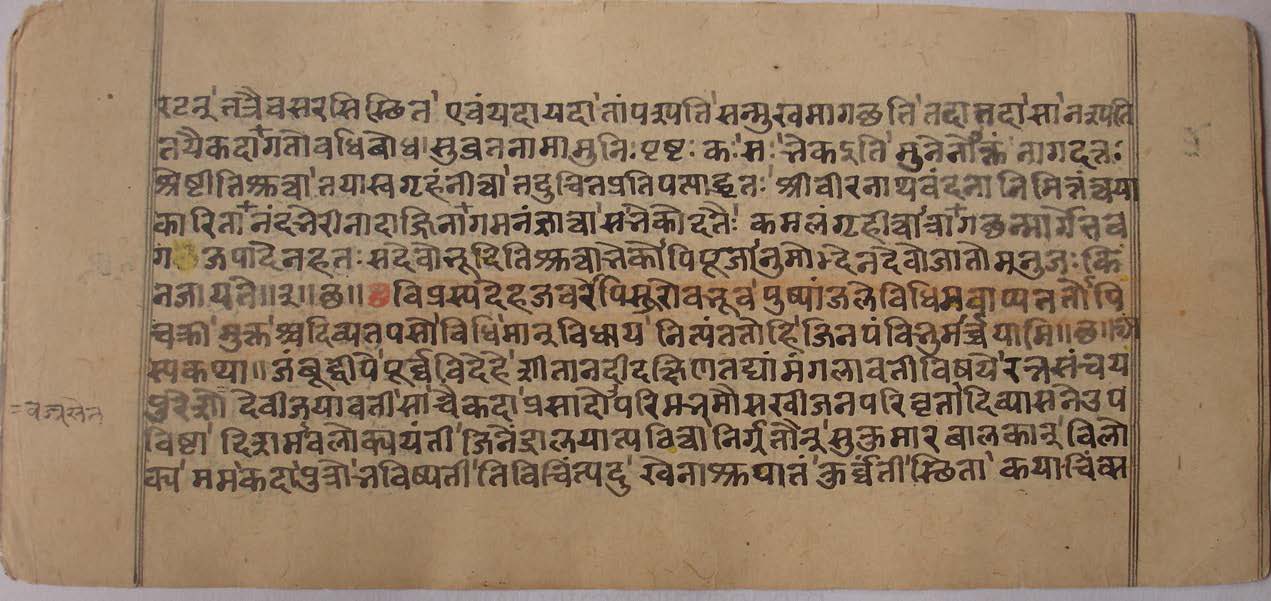 रटन् तत्रैव सरसि स्थित एवं यदा यदा तां पश्यति सन्मुखमागछति तदा तदा सा नश्यति
तयैकदागतोवधिबोध सुव्रतनामा मुनिः पृष्टः कः सः भेक इति मुनिनोक्तं नागदत्तः
श्रेष्टीति श्रुत्वा तया स्वगृहं नीत्वा तदुचितप्रतिपत्त्या धृतः श्रीवीरनाथवंदनानिमित्तं त्वया
कारितानंदभेरीनादाज्जिनागमनं ज्ञात्वा स भेको दंतैः कमलं गृहीत्वात्रागछन्मार्गे तव
ग जपादेन हतः स देवोभूदिति श्रुत्वा भेकोपि पूजानुमोदेन देवो जातो मनुजः किं
न जायते॥३॥छ॥ विप्रस्य देहजचरोपि सुरो बभूव पुष्पांजलेविधिमवाप्य ततोपि
चक्री मुक्तश्च दिव्यतपसो विधिमान् विधाय नित्यं ततो हि जिनपं विभुमर्च्चयामि॥छ॥
स्य कथा॥ जंबूद्वीपे पूर्व्वविदेहे शीतानदीदक्षिणतट्यां मंगलावतीविषये रत्नसंचय
पुरे देवी जयावती सा चैकदा प्रसादोपरिमभूमौ सखीजनपरिवृता दिव्यासने उप
विष्टा दिशामवलोक्ययंती जिनेंद्रालयात्पवित्वा निर्गतान् सुकुमारबालकान् विलो
क्य मम कदा पुत्रो भविष्यतीति विचिंत्य दुःखेनाश्रुपातं कुर्व्वंती स्थिता कयाचित्स
=वज्रसेन